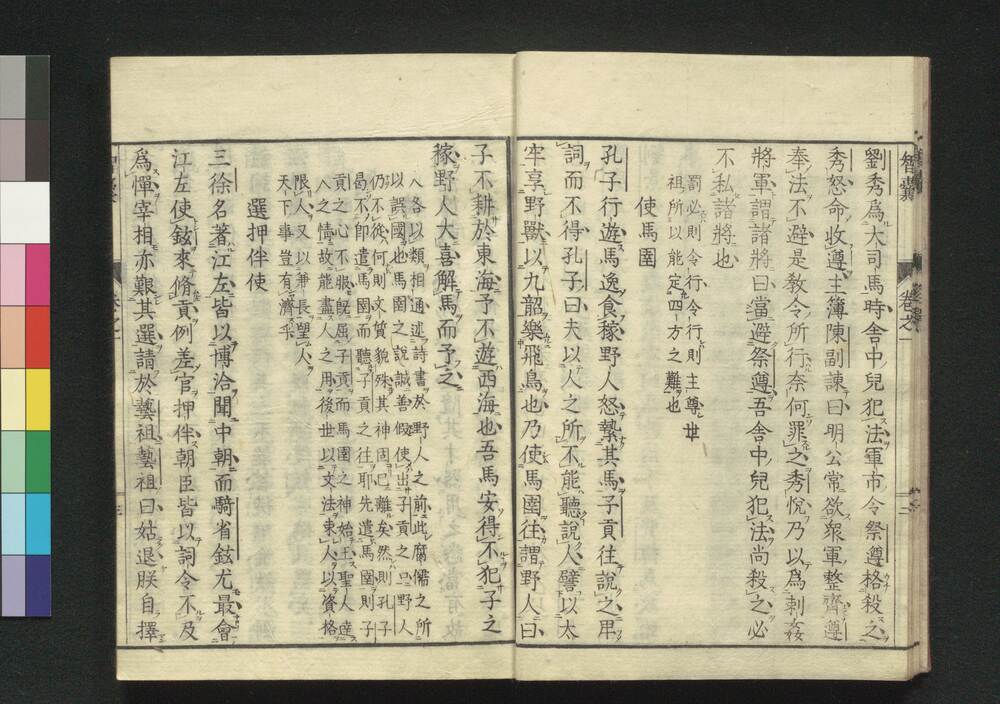 智囊 卷之一
劉秀爲大司馬時舍中兒犯法軍市令祭遵格殺之
秀怒命收遵主簿陳副諫曰明公常欲衆軍整齊遵
奉法不避是教令所行奈何罪之秀悅乃以爲刺姦
將軍謂諸將曰當避祭遵吾舍中兒犯法尚殺之必
不私諸將也
罰必則令行令行則主尊世
祖所以能定四方之難也
使馬圉
孔子行遊馬逸食稼野人怒縶其馬子貢往說之卑
詞而不得孔子曰夫以人之所不能聽說人譬以太
牢享野獸以九韶樂飛鳥也乃使馬圉往謂野人曰
子不耕於東海予不遊西海也吾馬安得不犯子之
稼野人大喜解馬而予之
人各以類相通述詩書於野人之前此腐儒之所
以誤國也馬圉之說誠善假使出子貢之口野人
仍不從何則文質貌殊其神固已離矣然則孔子
曷不即遣馬圉而聽子貢之往耶先遣馬圉則子
貢之心不服旣屈子貢而馬圉之神始至聖人達
人之情故能盡人之用後世以文法束人以資格
限人又以兼長望人
天下事豈有濟乎
選押伴使
三徐名著江左皆以博洽聞中朝而騎省鉉尤最會
江左使鉉來脩貢例差官押伴朝臣皆以詞令不及
爲憚宰相亦艱其選請於藝祖藝祖曰姑退朕自擇